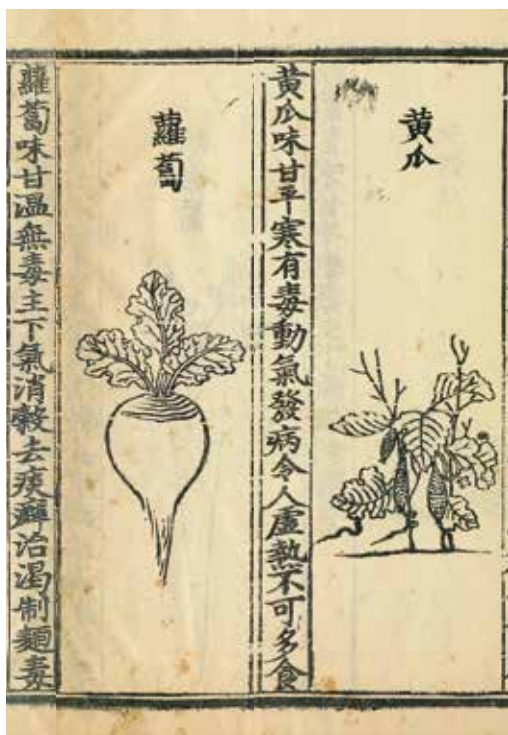 黄瓜
黄瓜味甘平寒有毒動氣發病令人虛熱不可多食
蘿蔔
蘿蔔味甘溫無毒主下氣消穀去痰癖治渴制麵毒